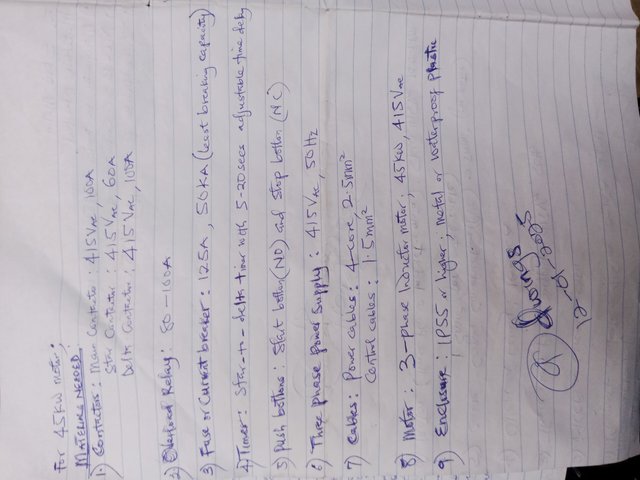 For 45kW motor;
MATERIALS NEEDED
1) Contactors: Main Contactor: 415Vac, 100A
Star Contactor: 415Vac, 60A
Delta Contactor: 415Vac, 100A
2) Overload Relay: 80-100A
3) Fuse or Current breaker: 125A, 50KA (least breaking capacity)
4) Timer: Star-to-delta timer with 5-20secs adjustable time delay
5) Push bottons: Start botton (NO) and Stop botton (NC)
6) Three phase power Supply: 415Vac, 50Hz
7) Cables: Power cables: 4-core 2.5mm²
Control cables: 1.5mm²
8) Motor: 3-phase Inductor motor; 45kW, 415Vac
9) Enclosure: IP55 or higher; metal or waterproof plastic
12-01-2025